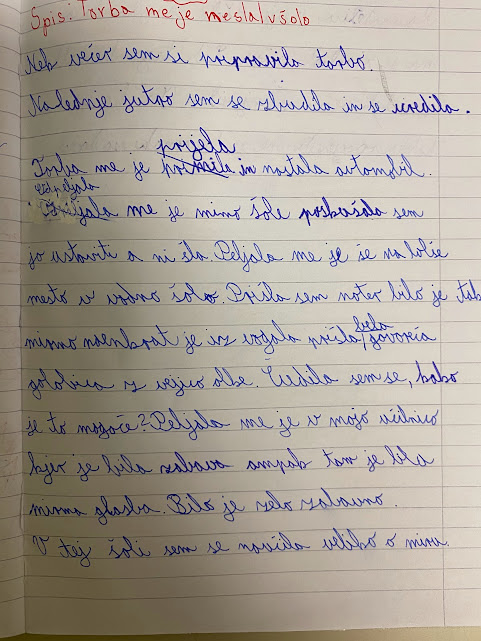 Spis: Torba me je neslal v šolo
Nek večer sem si pripravila torbo.
Naslednje jutro sem se zbudila in se uredila.
prijela
Torba me je prinesla in nastala avtomobil.
Peljala me je mimo šole poskušala sem
jo ustaviti a ni šla. Peljala me je še na lolše
mesto v vodno šolo. Prišla sem noter bilo je tak
mirno naenkrat je iz vogala prišla, bela govoreča
golobica z vejico olke. Čudila sem se, kako
je to mogoče? Peljala me je v mojo učilnico
kjer je bila zabava ampak tam je bila
mirna glasba. Bilo je zelo zabavno.
V tej šoli sem se naučila veliko o miru.